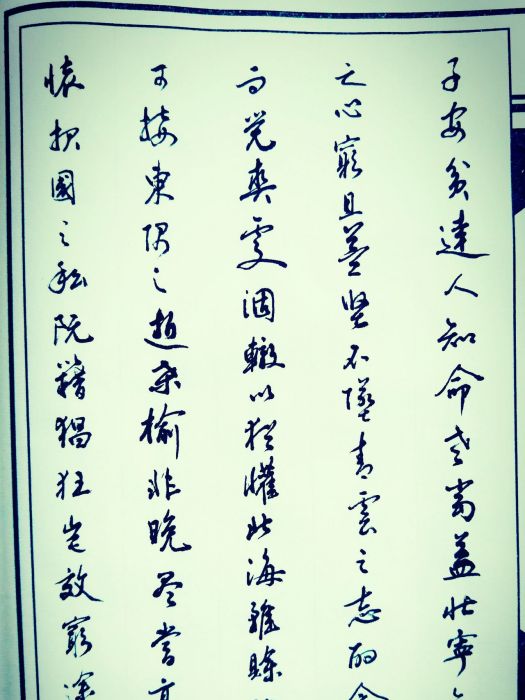 子安貧達人知命老當益壯寧
之心窮且益堅不墜青雲之志酌貪
而覺爽處涸轍以猶懽北海雖賒
可接東隅之逝桑榆非晚孟嘗高
懷報國之私阮籍猖狂豈效窮途